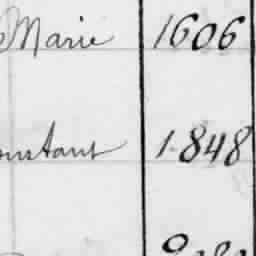 Marie 1606
onstant 1848